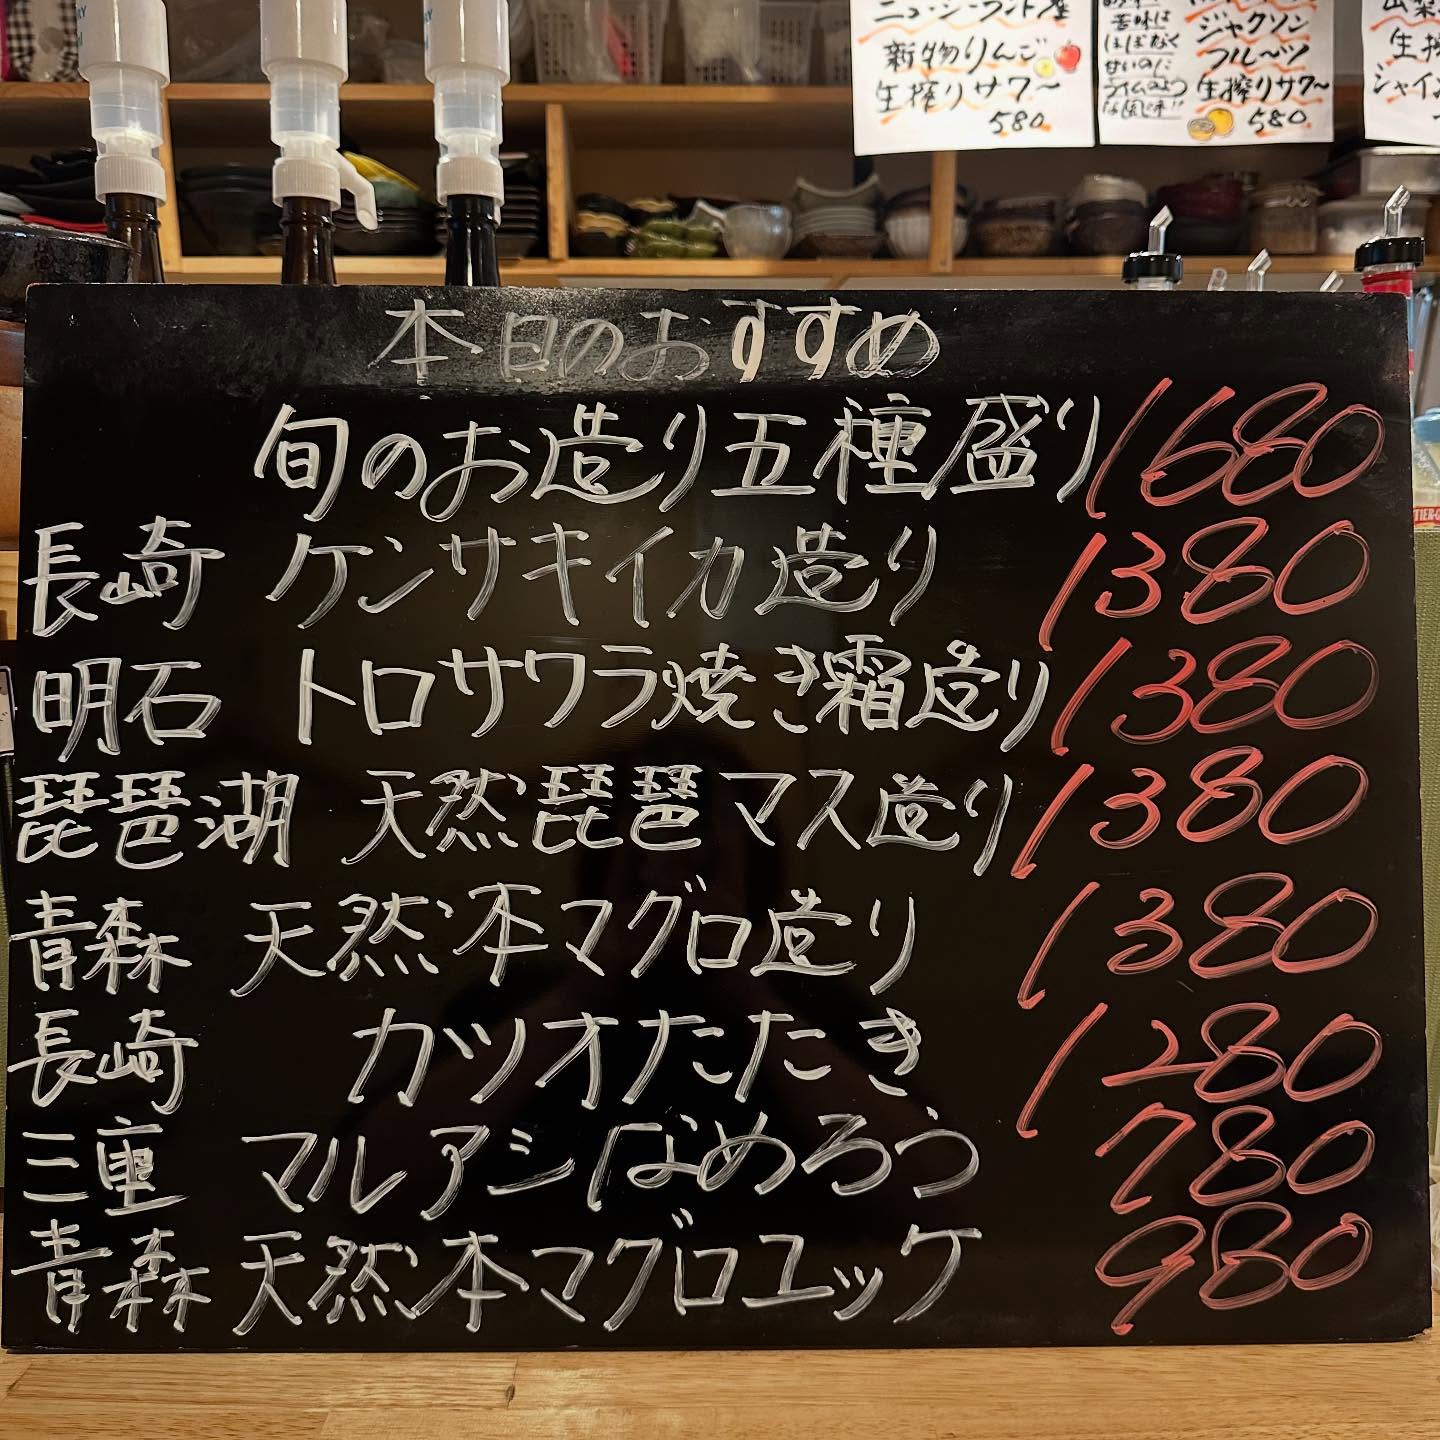 ニュージーランド産
新物りんご
生搾りサワー
580
苦味は
ほぼなく
甘いのに
ジャクソン
フルーツ
生搾りサワー
580
生搾
本日のおすすめ
旬のお造り五種盛り 1680
長崎 ケンサキイカ造り 1380
明石 トロサワラ焼き霜造り 1380
琵琶湖 天然琵琶マス造り 1380
青森 天然本マグロ造り 1380
長崎 カツオたたき 1280
三重 マルアジなめろう 780
青森 天然本マグロユッケ 980